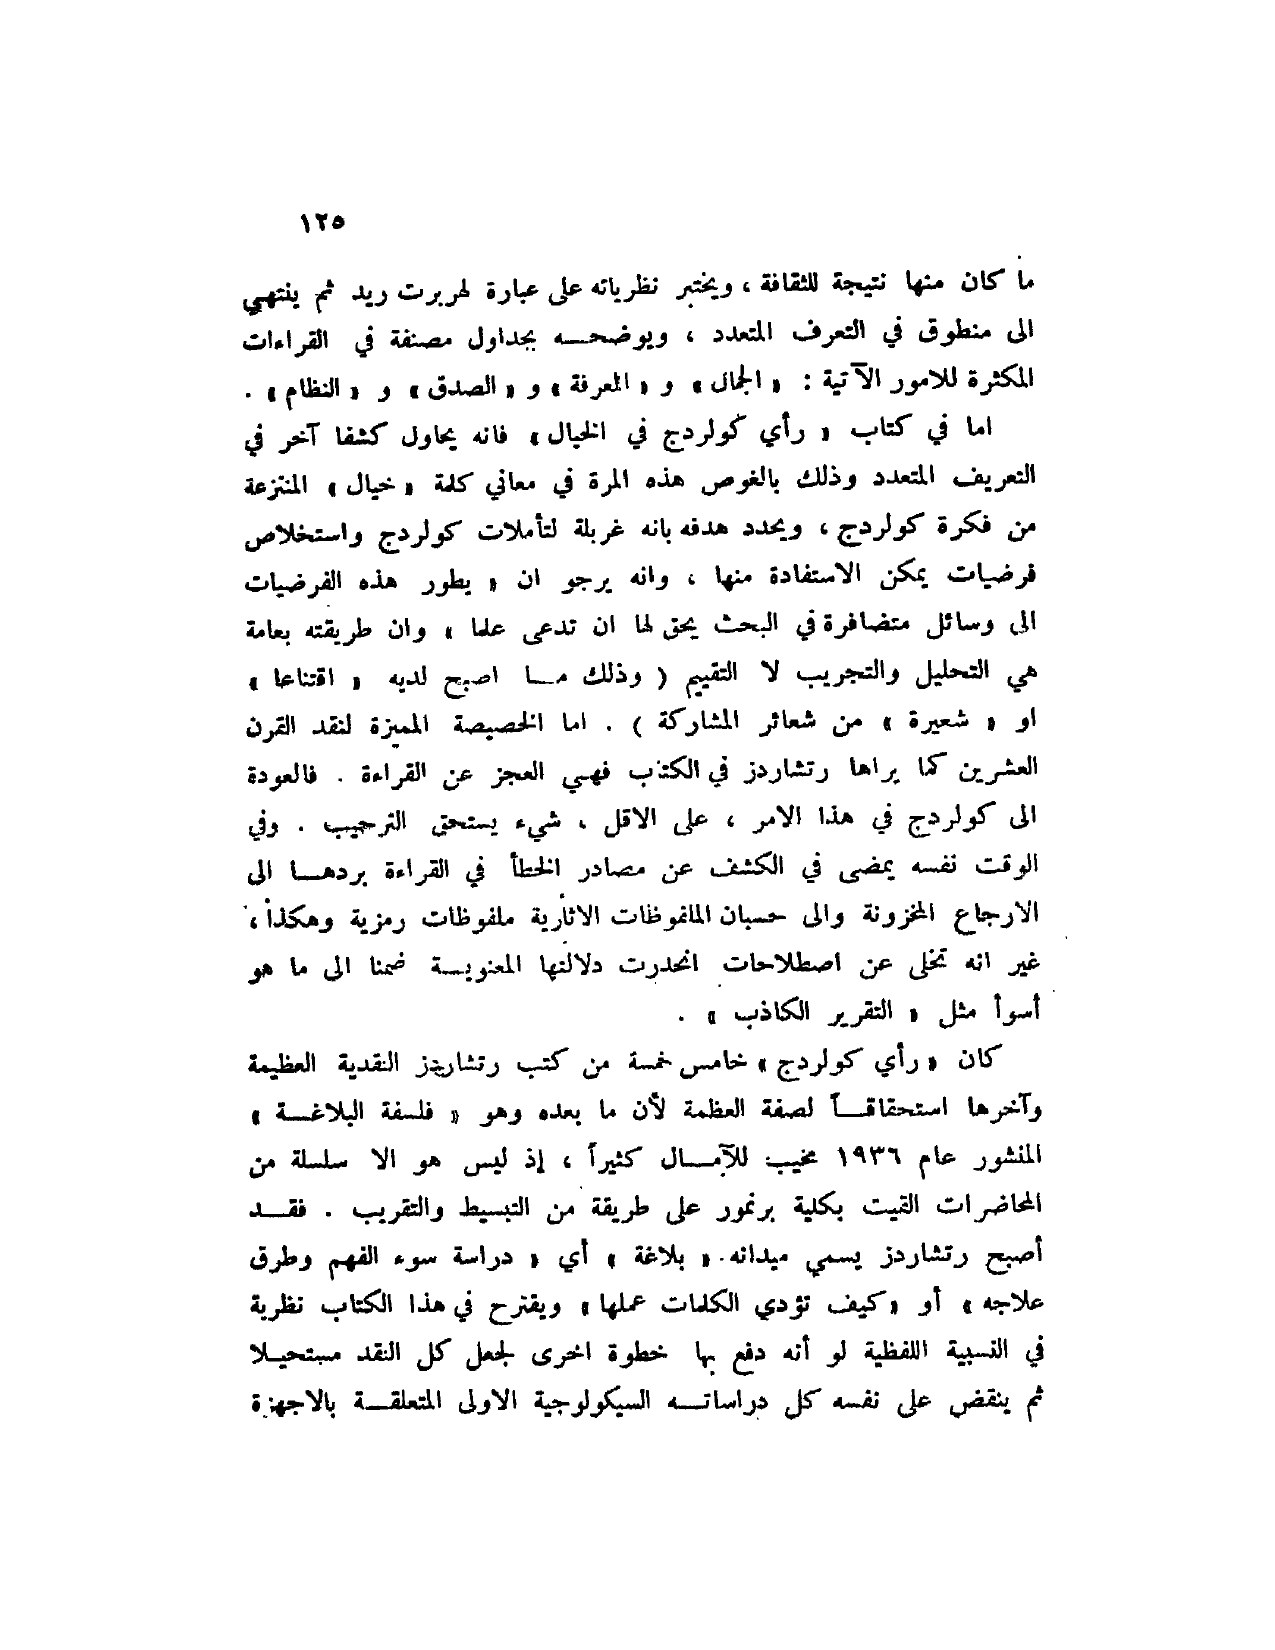 ١٢٥
ما كان منها نتيجة للثقافة ، ويختبر نظرياته على عبارة لهربرت ريد ثم ينتهي
الى منطوق في التعرف المتعدد ، ويوضحه بجداول مصنفة في القراءات
المكثرة للامور الآتية : « الجمال » و « المعرفة » و « الصدق » و « النظام » .
اما في كتاب « رأي كولردج في الخيال » فانه يحاول كشفا آخر في
التعريف المتعدد وذلك بالغوص هذه المرة في معاني كلمة « خيال » المنتزعة
من فكرة كولردج ، ويحدد هدفه بانه غربلة لتأملات كولردج واستخلاص
فرضيات يمكن الاستفادة منها ، وانه يرجو ان « يطور هذه الفرضيات
الى وسائل متضافرة في البحث يحق لها ان تدعى علما » وان طريقته بعامة
هي التحليل والتجريب لا التقييم ( وذلك ما اصبح لديه « اقتناعا »
او « شعيرة » من شعائر المشاركة ) . اما الخصيصة المميزة لنقد القرن
العشرين كما يراها رتشاردز في الكتاب فهي العجز عن القراءة . فالعودة
الى كولردج في هذا الامر ، على الاقل ، شيء يستحق الترحيب . وفي
الوقت نفسه يمضى في الكشف عن مصادر الخطأ في القراءة بردها الى
الارجاع المخزونة والى حسبان الملفوظات الاثارية ملفوظات رمزية وهكذا ،
غير انه تخلى عن اصطلاحات انحدرت دلالتها المعنوية ضمنا الى ما هو
أسوأ مثل « التقرير الكاذب » .
كان « رأي كولردج » خامس خمسة من كتب رتشاردز النقدية العظيمة
وآخرها استحقاقاً لصفة العظمة لأن ما بعده وهو « فلسفة البلاغة »
المنشور عام ١٩٣٦ مخيب للآمال كثيراً ، إذ ليس هو الا سلسلة من
المحاضرات القيت بكلية برنمور على طريقة من التبسيط والتقريب . فقد
أصبح رتشاردز يسمي ميدانه « بلاغة » أي « دراسة سوء الفهم وطرق
علاجه » أو « كيف تؤدي الكلمات عملها » ويقترح في هذا الكتاب نظرية
في النسبية اللفظية لو أنه دفع بها خطوة اخرى لجعل كل النقد مستحيلا
ثم ينقض على نفسه كل دراساته السيكولوجية الاولى المتعلقة بالاجهزة